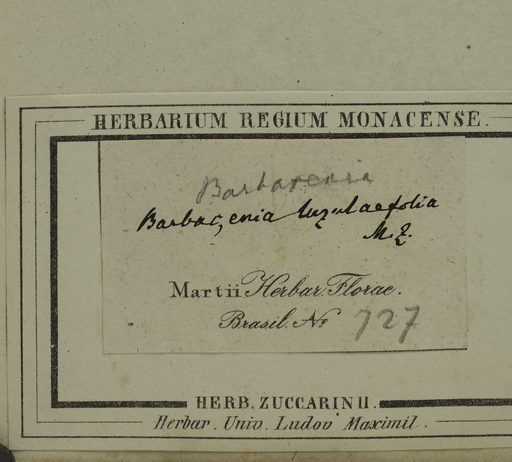 HERBARIUM REGIUM MONACENSE.
Barbacenia
Barbaçenia luzulaefolia
M. Z.
Martii Herbar. Florae.
Brasil. No 727
HERB. ZUCCARINII.
Herbar. Univ. Ludov Maximil.